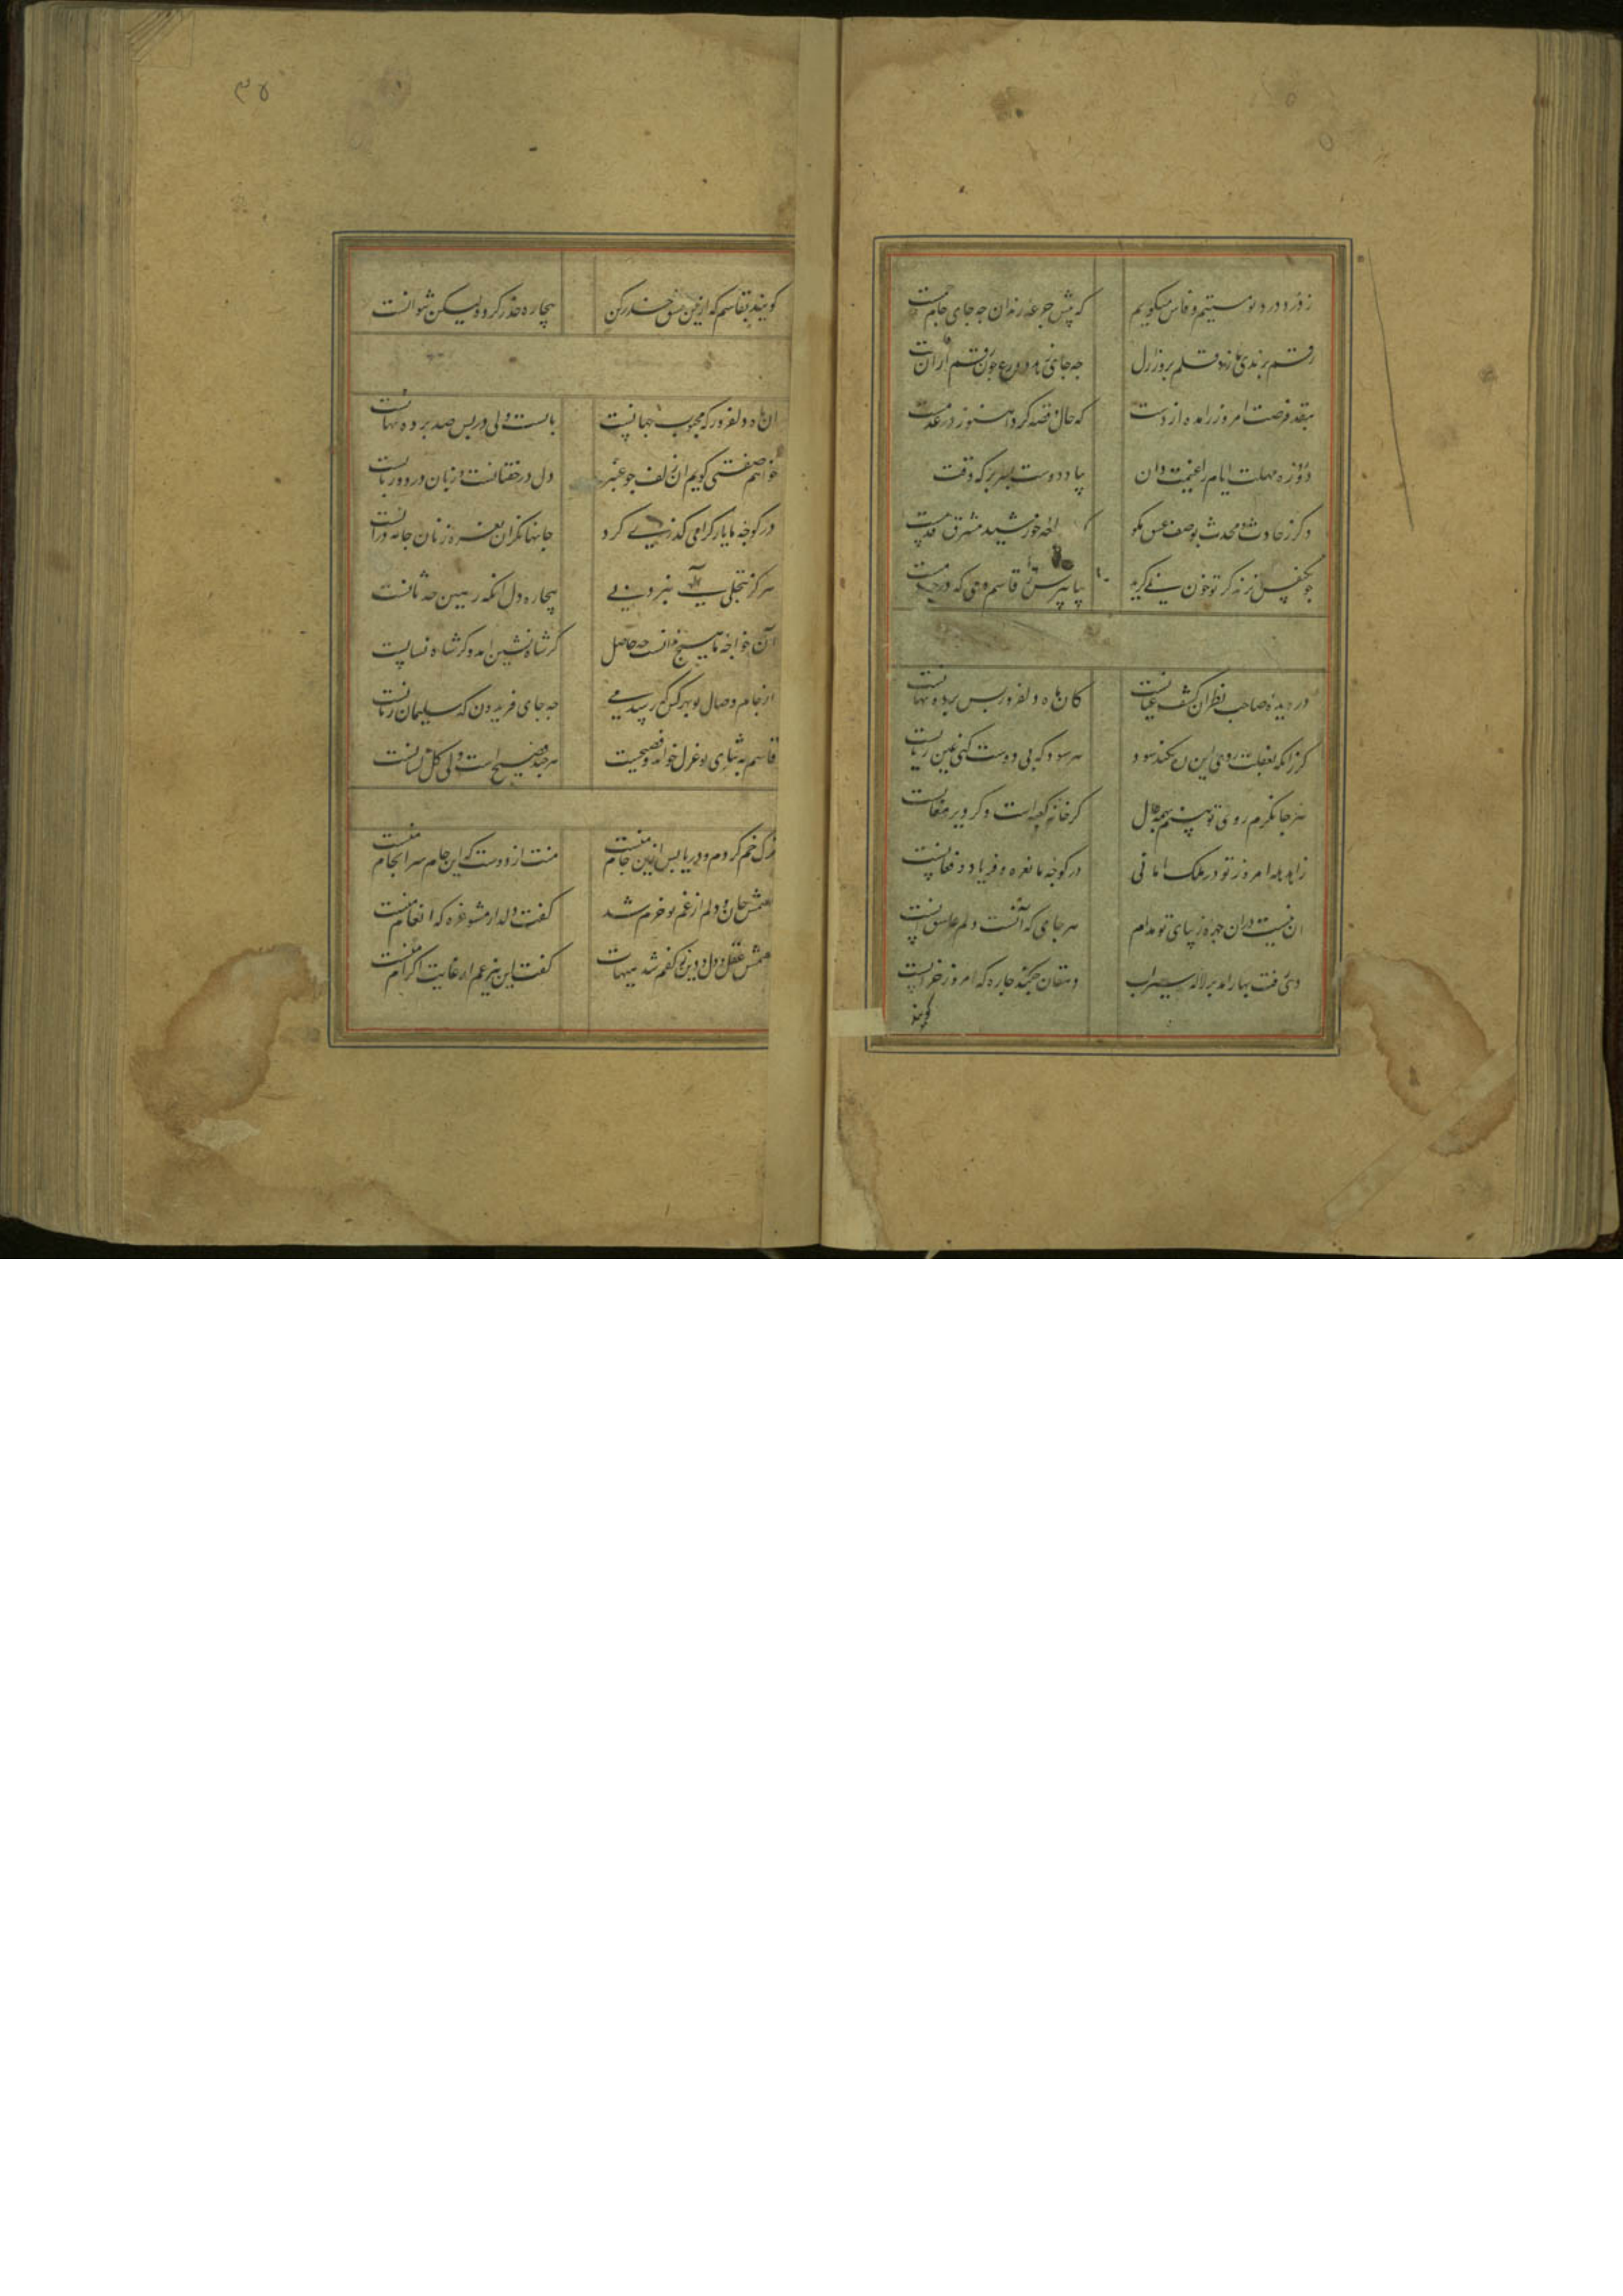 ز درد درد تو مستیم و فاش میگویم که پیش جرعه رندان چه جای جام جمست
رقم برندی ما زد قلم بروز ازل چه جای زهد و ورع چون رقم ازان قلمست
بنقد فرصت امروز را مده از دست که حال قصه فردا هنوز در عدمست
دو روزه مهلت ایام را غنیمت دان بیاد دوست بسر بر که وقت
دکر ز حادث و محدث بوصف حسن مکو که خورشید مشرق قدمست
بیا بپرس قاسم دمی که
در دیده صاحب نظران کشف عیانست کان ماه دلفروز پس پرده نهانست
کر زانکه بغفلت روی این ره نکند سود هر سود که بی دوست کنی عین زیانست
هر جا نکرم روی تو بینم بهمه حال کر خانه کعبه است و کر دیر مغانست
زاهد بله امروز تو در ملک امانی در کوچه ما نعره و فریاد و فغانست
هر جای که
دی رفت بهار آمد بر لاله سیراب دهقان چکند چاره که امروز خزانست
کویند
۳۵
کویند بقاسم که ازین عشق حذر کن بیچاره حذر کرد ولیکن نتوانست
آن ماه دلفروز که محبوب جهانست با ماست ولی در پس صد پرده نهانست
خواهم صفتی کویم ازان زلف چو عنبر دل در خفقانست و زبان در دورانست
در کوچه ما یار کرامی کذری کرد جانها نکران نعره زنان جامه درانست
هرکز بتجلی نبرد پی بیچاره دل آنکه رهین حدثانست
آن خواجه ما هیچ ندانست چه حاصل کر شاه نشین آمد و کر شاه نسانست
از جام وصال تو بهر کس نرسد می چه جای فریدون که سلیمان زمانست
قاسم به ثنای تو غزل خواند و فصیحست هر چند فصیح است ولی کل لسانست
ترک خم کردم و دریا پس ازین جام منست منت از دوست که این جام سرانجام منست
کفتمش جان و دلم از غم تو خرم شد کفت دلدار مشو غره که انعام منست
کفتمش عقل و دل و دین ز کفم شد هیهات کفت این نیز هم از غایت اکرام منست